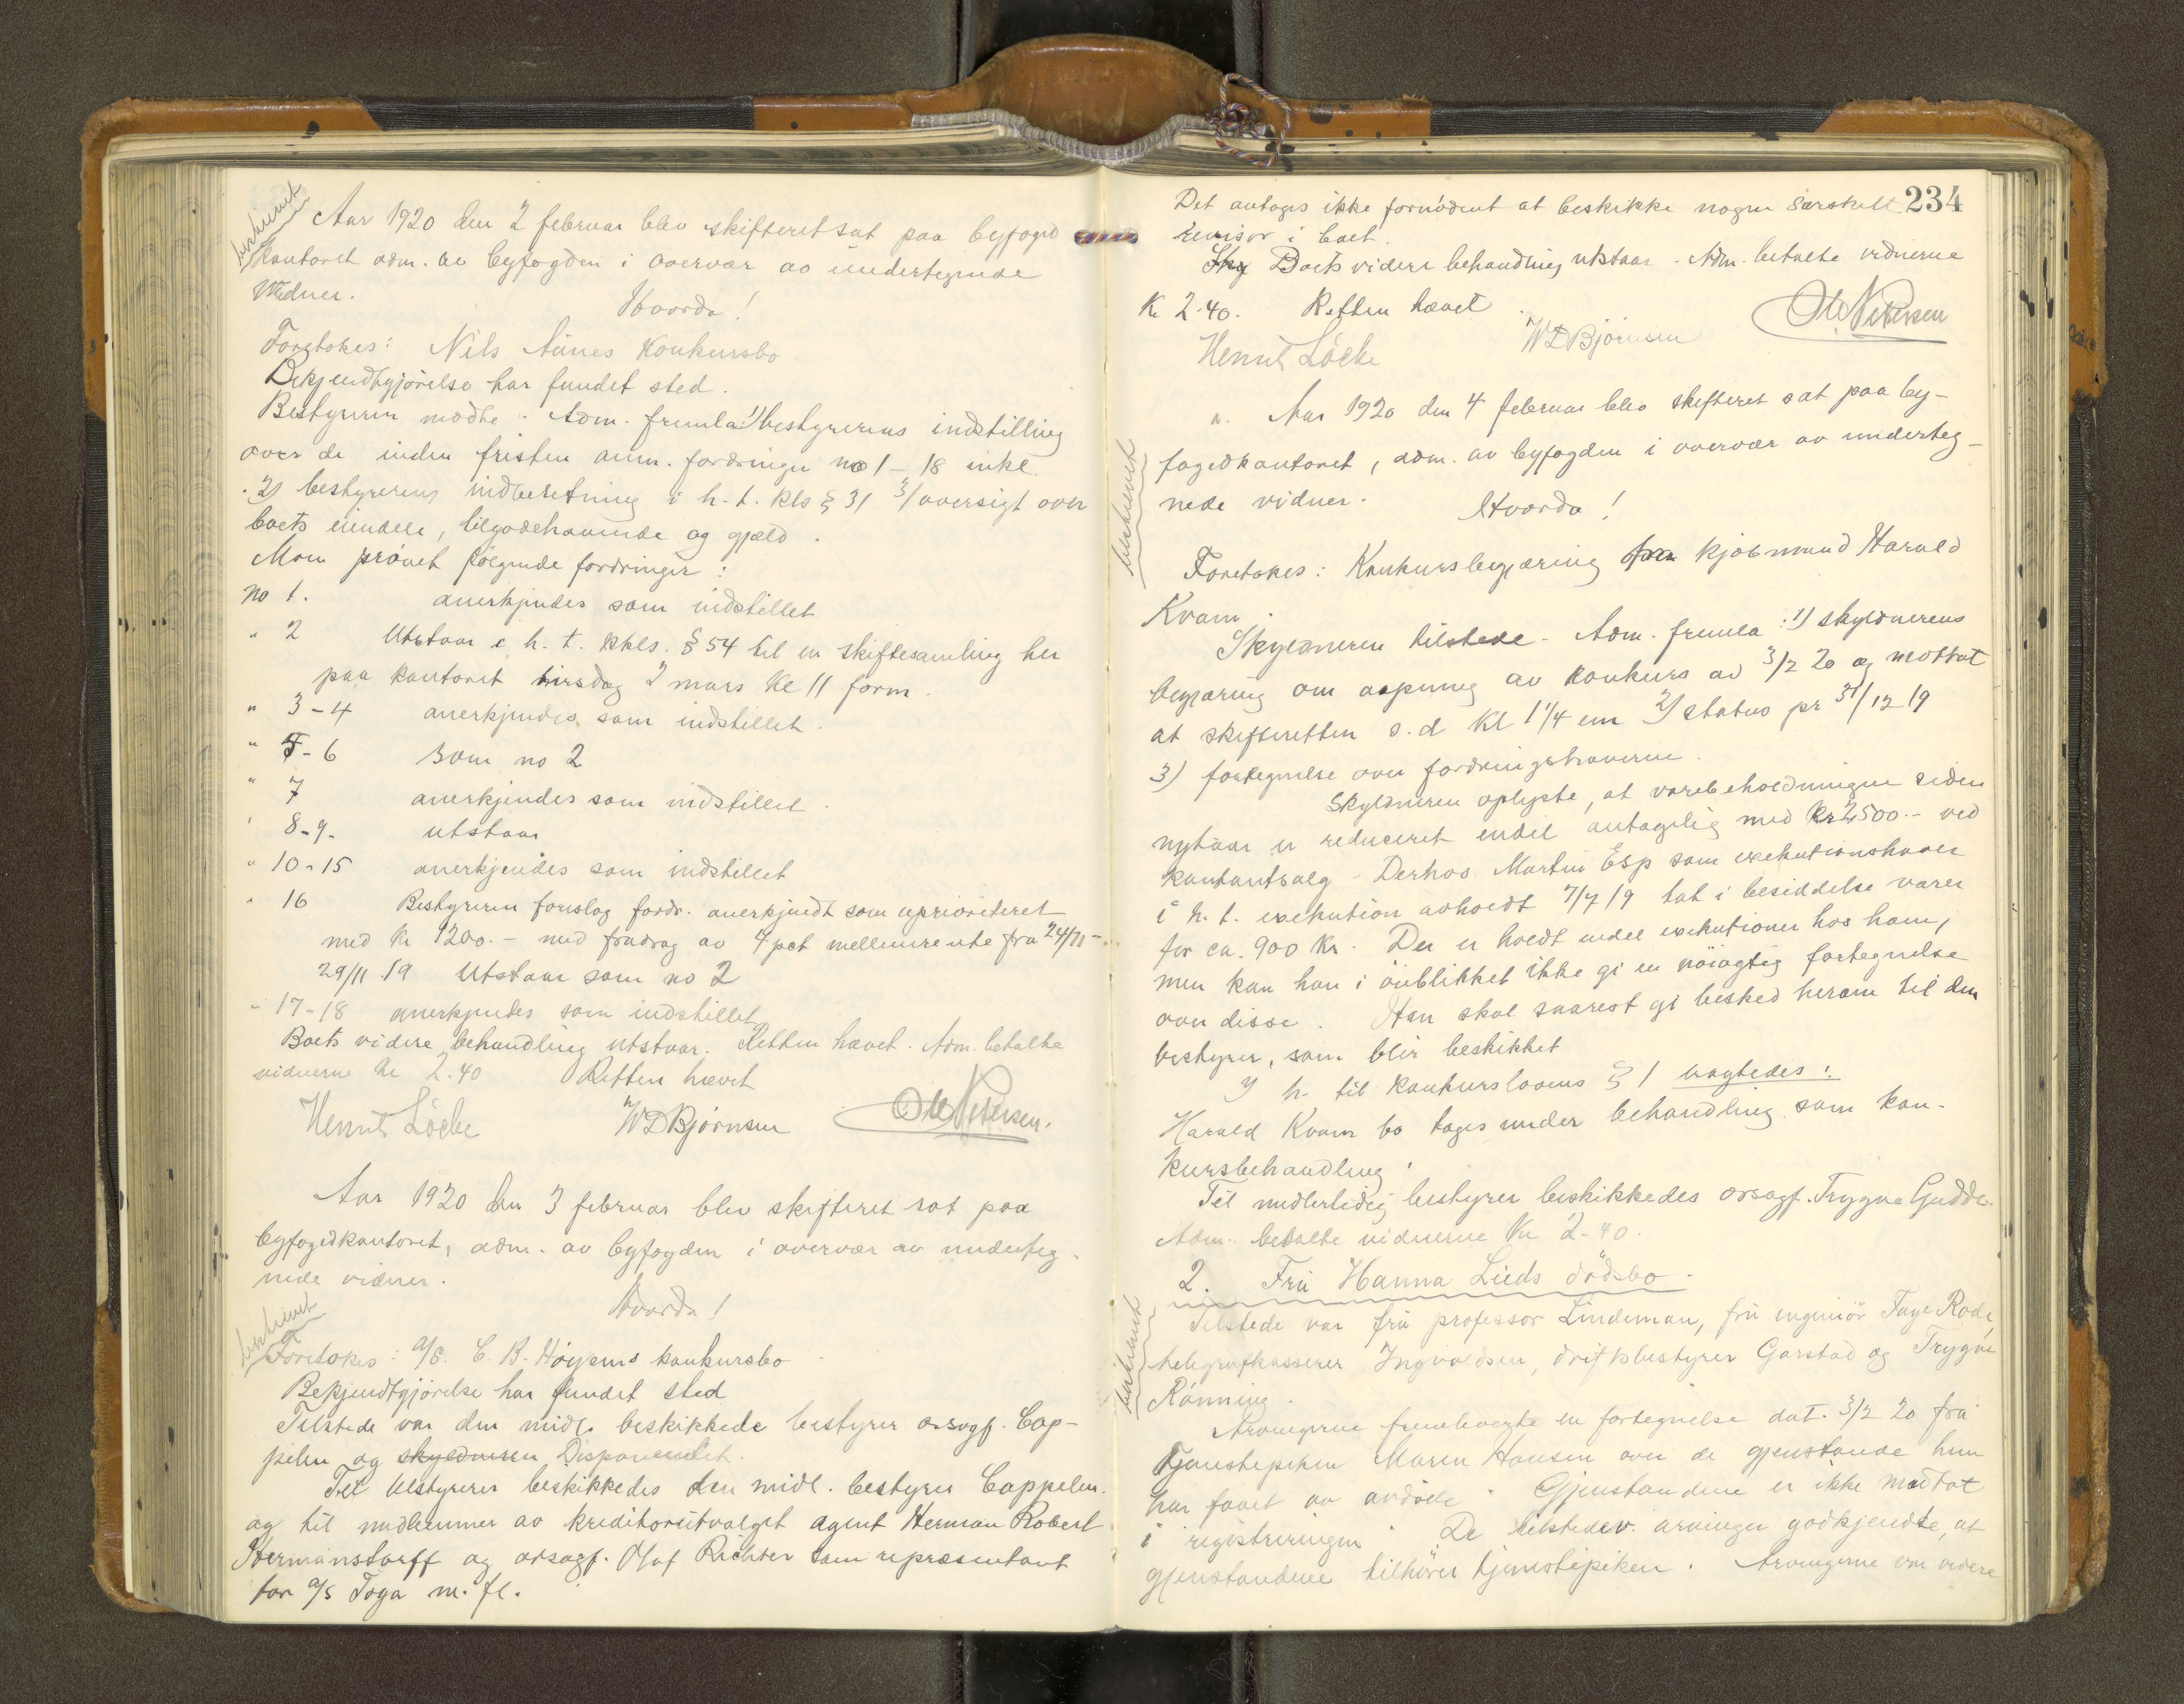 beskrevet
Aar 1920 den 2 februar blev skifteret sat paa byfoged
kontoret adm. av byfogden i overvær av undertegnede
vidner.
Hvorda!
Foretokes: Nils Aunes konkursbo
Bekjendtgjörelse har fundet sted.
Bestyreren mødte. Adm. fremla: 1) bestyrerens indstilling
over de inden fristen anm. fordringer no 1-18 inkl.
2) bestyrerens indberetning i h. t. kls § 31 3) oversigt over
boets eiendele, tilgodehavende og gjæld.
Man prövet fölgende fordringer:
No 1. anerkjendes som indstillet
" 2 Utstaar i h. t. kkls. § 54 til en skiftesamling her
paa kontoret tirsdag 2 mars kl 11 form.
" 3-4 anerkjendes som indstillet.
" 5-6 som no 2
" 7 anerkjendes som indstillet.
" 8-9- utstaar
" 10-15 anerkjendes som indstillet
" 16 Bestyreren foreslog fordr. anerkjendt som uprioriteret
med kr 1200.- med fradrag av 4 pct mellemrente fra 24/10-
29/11 19 Utstaar som no 2
" 17-18 anerkjendes som indstillet
Boets videre behandling utstaar. Retten hævet. Adm. betalte
vidnerne kr 2.40 Retten hævet
Henrit Löcke W D Bjørnsen Ole Petersen.
Aar 1920 den 3 februar blev skifteret sat paa
byfogedkontoret, adm. av byfogden i overvær av underteg-
nede vidner.
Hvorda!
beskrevet
Foretokes: A/S. C. B. Höysens konkursbo
Bekjendtgjörelse har fundet sted
Tilstede var den midl. beskikkede bestyrer orsagf. Cap-
pelen og skyldneren Disponentet.
Til bestyrer beskikkedes den midl. bestyrer Cappelen.
og til medlemmer av kreditorutvalget agent Herman Robert
Hermanstorff og orsagf. Olaf Richter som repræsentant
for A/S Toga m. fl.
234
Det antages ikke fornödent at beskikke nogen særskilt
revisor i boet.
Boets videre behandling utstaar. Adm. betalte vidnerne
Kr 2.40. Retten hævet
Henrit Löcke W D Bjørnsen Ole Petersen
Aar 1920 den 4 februar blev skifteret sat paa by-
fogedkontoret, adm. av byfogden i overvær av underteg-
nede vidner.
Hvorda!
beskrevet
Foretokes: Konkursbegjæring fra kjøbmand Harald
Kvam.
Skyldneren tilstede. Adm. fremla: 1) skyldnerens
begjæring om aapning av konkurs av 3/2 20 og mottat
at skifteretten s. d kl 1 1/4 em 2) status pr 31/12 19
3) fortegnelse over fordringshaverne.
Skyldneren oplyste, at varebeholdningen siden
nytaar er reduceret endel antagelig med kr 2500.- ved
kontantsalg - Derhos Martin Esp som exekutionshaver
i h. t. exekution avholdt 7/7 19 tat i besiddelse varer
for ca. 900 Kr. Der er holdt endel exekutioner hos ham,
men kan han i öieblikket ikke gi en nöiagtig fortegnelse
over disse. Han skal snarest gi besked herom til den
bestyrer, som blir beskikket
I h. til konkurslovens § 1 vragtedes:
Harald Kvam bo tages under behandling som kon-
kursbehandling.
Til midlertidig bestyrer beskikkedes orsagf. Trygve Gudde.
Adm. betalte vidnerne Kr 2-40.
2. Fru Hanna Lieds dödsbo.
beskrevet
Tilstede var fru professor Lindeman, fru ingeniör Tage Rode,
telegrafkasserer Ingvaldsen, driftsbestyrer Garstad og Trygve
Rönning.
Arvingerne fremla en fortegnelse dat. 3/2 20 fra
tjenestepiken Maren Hansen over de gjenstande hun
har faaet av avdöde. Gjenstandene er ikke medtat
i registreringen. De tilstedev. arvinger godkjendte, at
gjenstandene tilhörer tjenestepiken. Arvingerne var videre